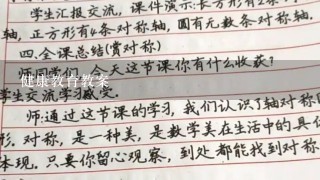 学生汇报交流，课件演示:长方形有2条
轴，正方形有4条对称轴，圆有无数条对称轴.
四.全课总结(赏对称)
今天这节课你有什么收获?
健康教育教案
学生交流学习感受.
师:通过这节课的学习，我们认识了轴对称
形.对称，是一种美，是数学美在生活中的具
体现.只要你留心观察，到处都能找到对称